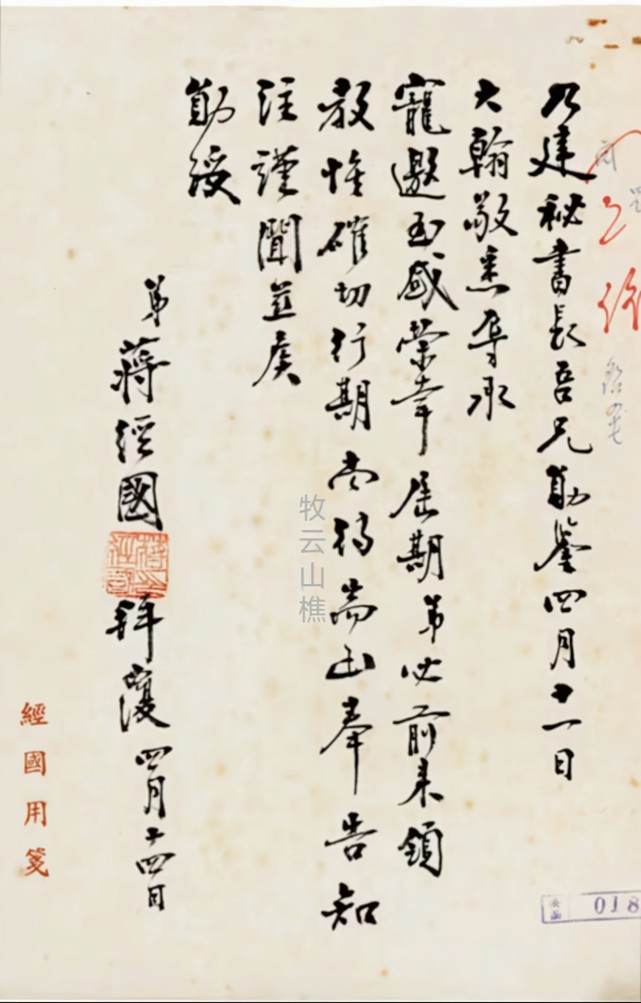 乃建秘書長吾兄勛鑒四月十一日
大翰敬悉辱承
寵邀至感榮幸屆期弟必前來領
教惟確切行期尚待耑函奉告知
注謹聞並矦
勛綏
弟蔣經國拜覆四月十四日
經國用箋
牧云山樵
018